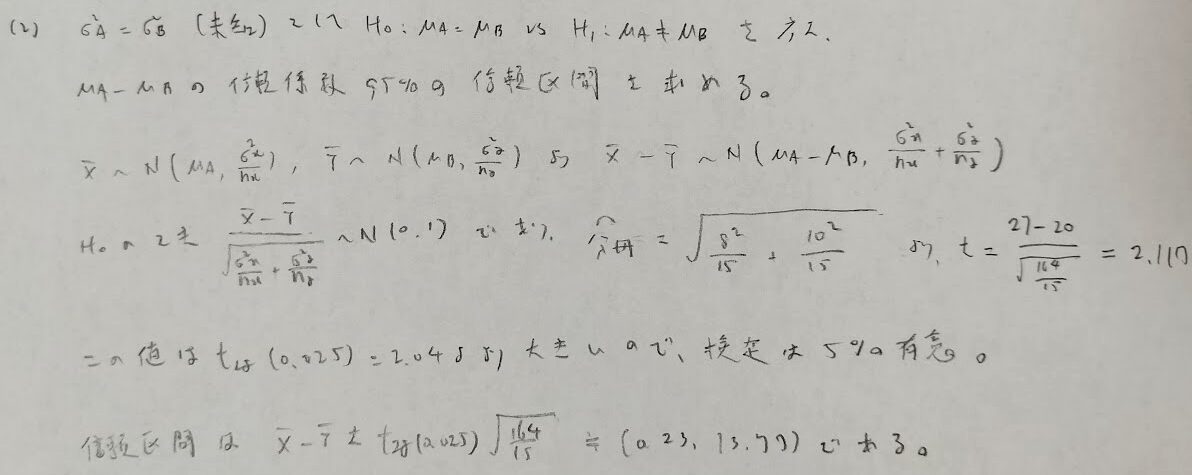 (2) σ²A = σ²B (未知) として H₀: μA = μB vs H₁: μA ≠ μB を考え、
μA - μB の信頼係数 95%の 信頼区間 を求める。
x̄ ~ N(μA, σ²x/nx), ȳ ~ N(μB, σ²y/ny) より x̄ - ȳ ~ N(μA - μB, σ²x/nx + σ²y/ny)
H₀のとき (x̄ - ȳ)/√(σ²x/nx + σ²y/ny) ~ N(0.1) であり、分母^ = √(8²/15 + 10²/15) より, t = (27-20)/√(164/15) = 2.117
この値は t₂₈(0.025) = 2.048 より 大きいので、検定は 5%有意。
信頼区間は x̄ - ȳ ± t₂₈(0.025)√(164/15) ≒ (0.23, 13.77) である。